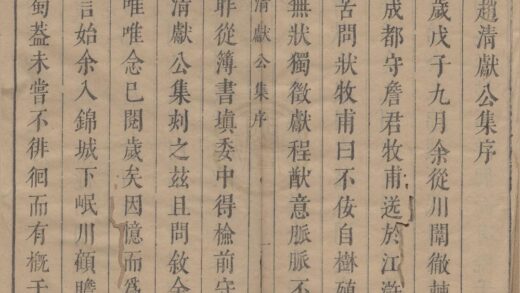 趙清獻公集序
歲戊子九月余從川闈徹棘
成都守詹君牧甫送於江滸
苦問狀牧甫曰不佞自樹殖
無狀獨徵獻程猷意脈脈不
清獻公集序 一
耶從簿書填委中得檢前守
清獻公集刻之茲且問敘余
唯唯念已閱歲矣因憶而為
言始余入錦城下岷川顧瞻
蜀蓋未嘗不徘徊而有概于